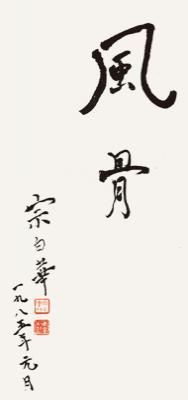 風骨
宗白華
一九八五年元月